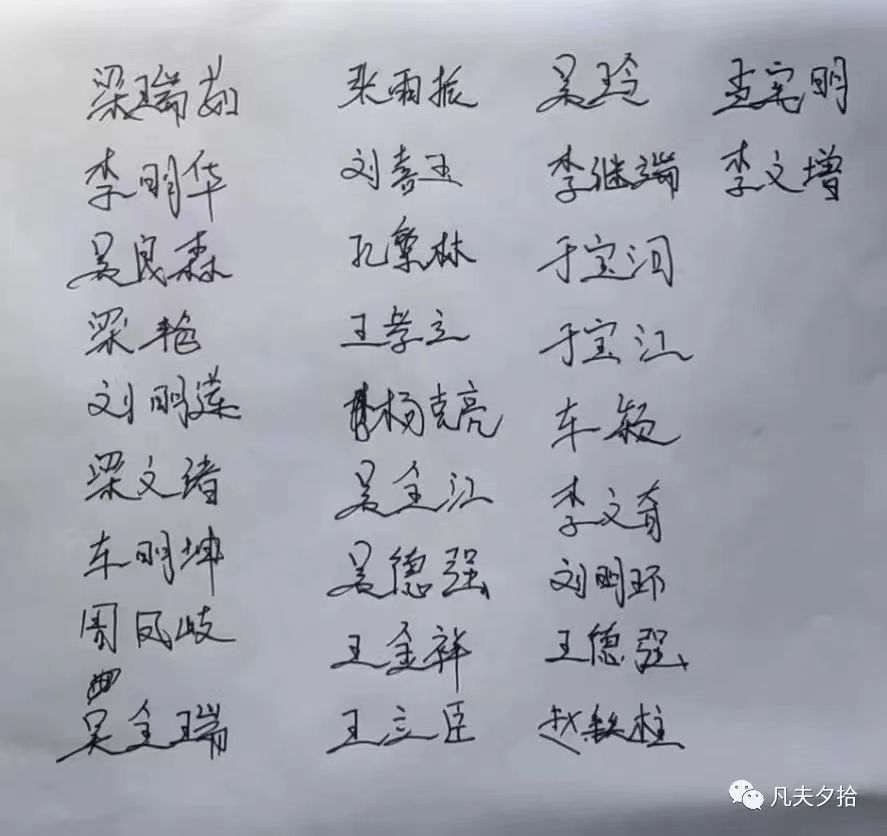 梁瑞茹 张雨振 吴玲 孟宪明
李明华 刘喜玉 李继瑞 李文增
吴良森 孔繁林 于宝泪
梁艳 王学立 于宝江
刘明莲 杨克亮 车颖
梁文绪 吴全江 李文育
车明坤 吴德强 刘明环
周凤岐 王金祥 王德强
吴全瑞 王立臣 赵铁柱
凡夫夕拾